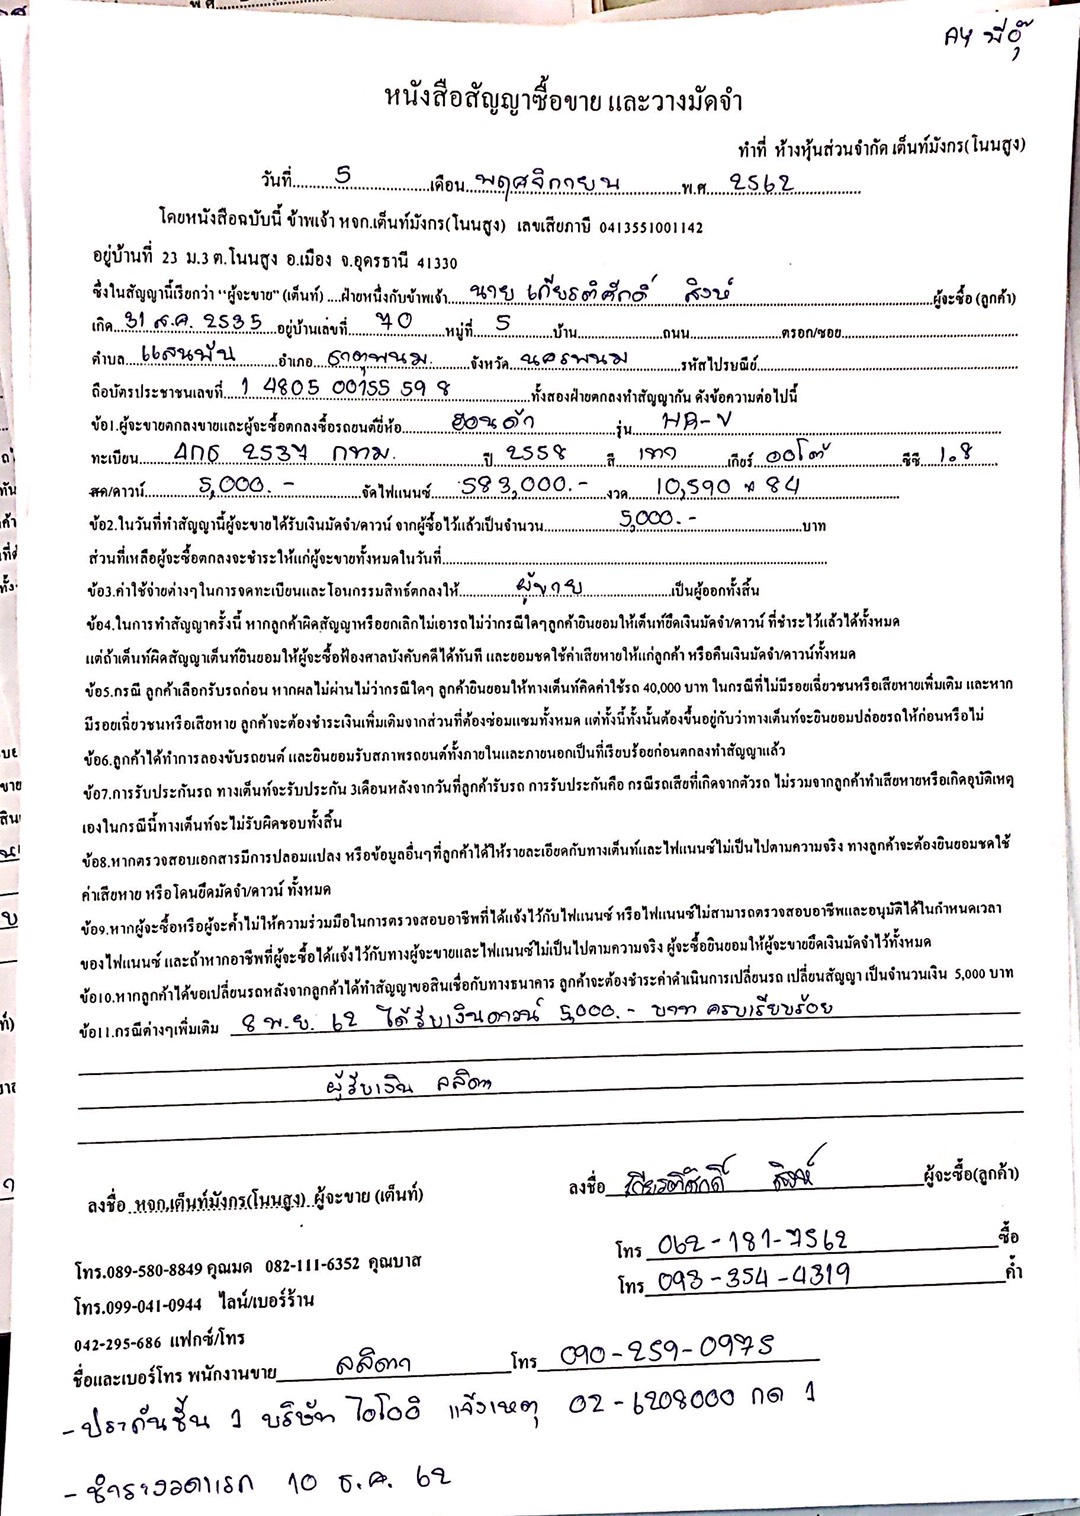 AY พี่อุ๊
หนังสือสัญญาซื้อขาย และวางมัดจำ
ทำที่ ห้างหุ้นส่วนจำกัด เต็นท์มังกร(โนนสูง)
วันที่ 5 เดือน พฤศจิกายน พ.ศ 2562
โดยหนังสือฉบับนี้ ข้าพเจ้า หจก.เต็นท์มังกร(โนนสูง) เลขเสียภาษี 0413551001142
อยู่บ้านที่ 23 ม.3 ต.โนนสูง อ.เมือง จ.อุดรธานี 41330
ซึ่งในสัญญานี้เรียกว่า "ผู้จะขาย" (เต็นท์) ....ฝ่ายหนึ่งกับข้าพเจ้า นาย เกียรติศักดิ์ สิงห์ ผู้จะซื้อ (ลูกค้า)
เกิด 31 ส.ค. 2535 อยู่บ้านเลขที่ 70 หมู่ที่ 5 บ้าน ถนน ตรอก/ซอย
ตำบล แสนพัน อำเภอ ธาตุพนม จังหวัด นครพนม รหัสไปรษณีย์
ถือบัตรประชาชนเลขที่ 1 4805 00155 59 8 ทั้งสองฝ่ายตกลงทำสัญญากัน ดังข้อความต่อไปนี้
ข้อ1.ผู้จะขายตกลงขายและผู้จะซื้อตกลงซื้อรถยนต์ยี่ห้อ ฮอนด้า รุ่น HR-V
ทะเบียน 4กธ 2537 กทม. ปี 2558 สี เทา เกียร์ ออโต้ ซีซี 1.8
สด/ดาวน์ 5,000.- จัดไฟแนนซ์ 583,000.- งวด 10,590 * 84
ข้อ2.ในวันที่ทำสัญญานี้ผู้จะขายได้รับเงินมัดจำ/ดาวน์ จากผู้ซื้อไว้แล้วเป็นจำนวน 5,000.- บาท
ส่วนที่เหลือผู้จะซื้อตกลงจะชำระให้แก่ผู้จะขายทั้งหมดในวันที่
ข้อ3.ค่าใช้จ่ายต่างๆในการจดทะเบียนและโอนกรรมสิทธ์ตกลงให้ ผู้ขาย เป็นผู้ออกทั้งสิ้น
ข้อ4.ในการทำสัญญาครั้งนี้ หากลูกค้าผิดสัญญาหรือยกเลิกไม่เอารถไม่ว่ากรณีใดๆลูกค้ายินยอมให้เต็นท์ยึดเงินมัดจำ/ดาวน์ ที่ชำระไว้แล้วได้ทั้งหมด
แต่ถ้าเต็นท์ผิดสัญญาเต็นท์ยินยอมให้ผู้จะซื้อฟ้องศาลบังคับคดีได้ทันที และยอมชดใช้ค่าเสียหายให้แก่ลูกค้า หรือคืนเงินมัดจำ/ดาวน์ทั้งหมด
ข้อ5.กรณี ลูกค้าเลือกรับรถก่อน หากผลไม่ผ่านไม่ว่ากรณีใดๆ ลูกค้ายินยอมให้ทางเต็นท์คิดค่าใช้รถ 40,000 บาท ในกรณีที่ไม่มีรอยเฉี่ยวชนหรือเสียหายเพิ่มเติม และหาก
มีรอยเฉี่ยวชนหรือเสียหาย ลูกค้าจะต้องชำระเงินเพิ่มเติมจากส่วนที่ต้องซ่อมแซมทั้งหมด แต่ทั้งนี้ทั้งนั้นต้องขึ้นอยู่กับว่าทางเต็นท์จะยินยอมปล่อยรถให้ก่อนหรือไม่
ข้อ6.ลูกค้าได้ทำการลองขับรถยนต์ และยินยอมรับสภาพรถยนต์ทั้งภายในและภายนอกเป็นที่เรียบร้อยก่อนตกลงทำสัญญาแล้ว
ข้อ7.การรับประกันรถ ทางเต็นท์จะรับประกัน 3เดือนหลังจากวันที่ลูกค้ารับรถ การรับประกันคือ กรณีรถเสียที่เกิดจากตัวรถ ไม่รวมจากลูกค้าทำเสียหายหรือเกิดอุบัติเหตุ
เองในกรณีนี้ทางเต็นท์จะไม่รับผิดชอบทั้งสิ้น
ข้อ8.หากตรวจสอบเอกสารมีการปลอมแปลง หรือข้อมูลอื่นๆที่ลูกค้าได้ให้รายละเอียดกับทางเต็นท์และไฟแนนซ์ไม่เป็นไปตามความจริง ทางลูกค้าจะต้องยินยอมชดใช้
ค่าเสียหาย หรือโดนยึดมัดจำ/ดาวน์ ทั้งหมด
ข้อ9.หากผู้จะซื้อหรือผู้จะค้ำไม่ให้ความร่วมมือในการตรวจสอบอาชีพที่ได้แจ้งไว้กับไฟแนนซ์ หรือไฟแนนซ์ไม่สามารถตรวจสอบอาชีพและอนุมัติได้ในกำหนดเวลา
ของไฟแนนซ์ และถ้าหากอาชีพที่ผู้จะซื้อได้แจ้งไว้กับทางผู้จะขายและไฟแนนซ์ไม่เป็นไปตามความจริง ผู้จะซื้อยินยอมให้ผู้จะขายยึดเงินมัดจำไว้ทั้งหมด
ข้อ10.หากลูกค้าได้ขอเปลี่ยนรถหลังจากลูกค้าได้ทำสัญญาขอสินเชื่อกับทางธนาคาร ลูกค้าจะต้องชำระค่าดำเนินการเปลี่ยนรถ เปลี่ยนสัญญา เป็นจำนวนเงิน 5,000 บาท
ข้อ11.กรณีต่างๆเพิ่มเติม 8 พ.ย. 62 ได้รับเงินดาวน์ 5,000.- บาท ครบเรียบร้อย
ผู้รับเงิน ลลิตา
ลงชื่อ หจก.เต็นท์มังกร(โนนสูง) ผู้จะขาย (เต็นท์)
ลงชื่อ เกียรติศักดิ์ สิงห์ ผู้จะซื้อ(ลูกค้า)
โทร 062-181-7562 ซื้อ
โทร 093-354-4319 ค้ำ
โทร.089-580-8849 คุณมด 082-111-6352 คุณบาส
โทร.099-041-0944 ไลน์/เบอร์ร้าน
042-295-686 แฟกซ์/โทร
ชื่อและเบอร์โทร พนักงานขาย ลลิตา โทร 090-259-0975
- ประกันชั้น 1 บริษัท ไอโออิ แจ้งเหตุ 02-6208000 กด 1
- ชำระงวดแรก 10 ธ.ค. 62